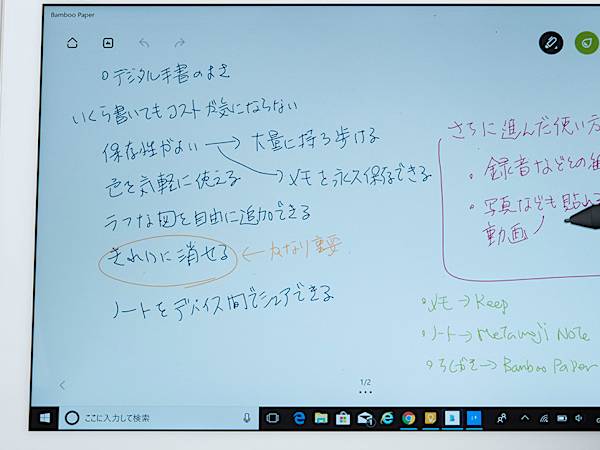 Bamboo Paper
○デジタル手書のよさ
いくら書いてもコストが気にならない
保存性がよい → 大量に持ち歩ける
色を気軽に使える → メモを永久保存できる
ラフな図を自由に追加できる
きれいに消せる ← かなり重要
ノートをデバイス間でシェアできる
さらに進んだ使い方
・録音などとの
・写真なども貼れる
動画
・メモ → Keep
・ノート → MetaMoji Note
・らくがき → Bamboo Paper
1/2
ここに入力して検索